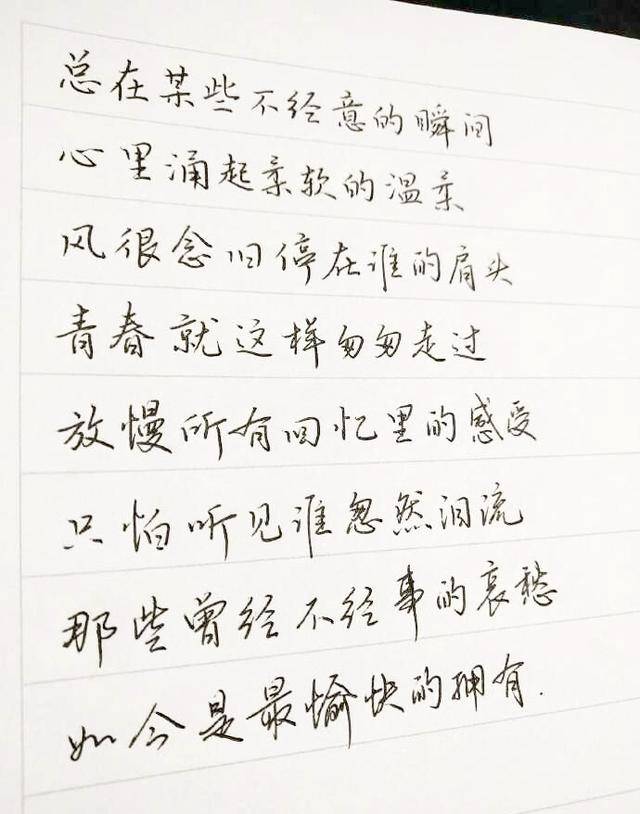 总在某些不经意的瞬间
心里涌起柔软的温柔
风很念旧停在谁的肩头
青春就这样匆匆走过
放慢所有回忆里的感受
只怕听见谁忽然泪流
那些曾经不经事的哀愁
如今是最愉快的拥有.